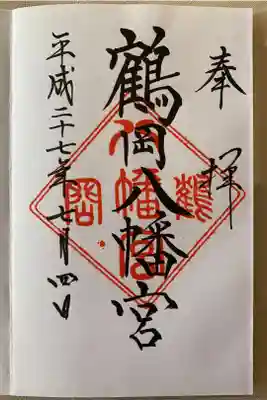 奉拝
鶴岡八幡宮
平成二十七年七月四日
鶴岡
八幡宮